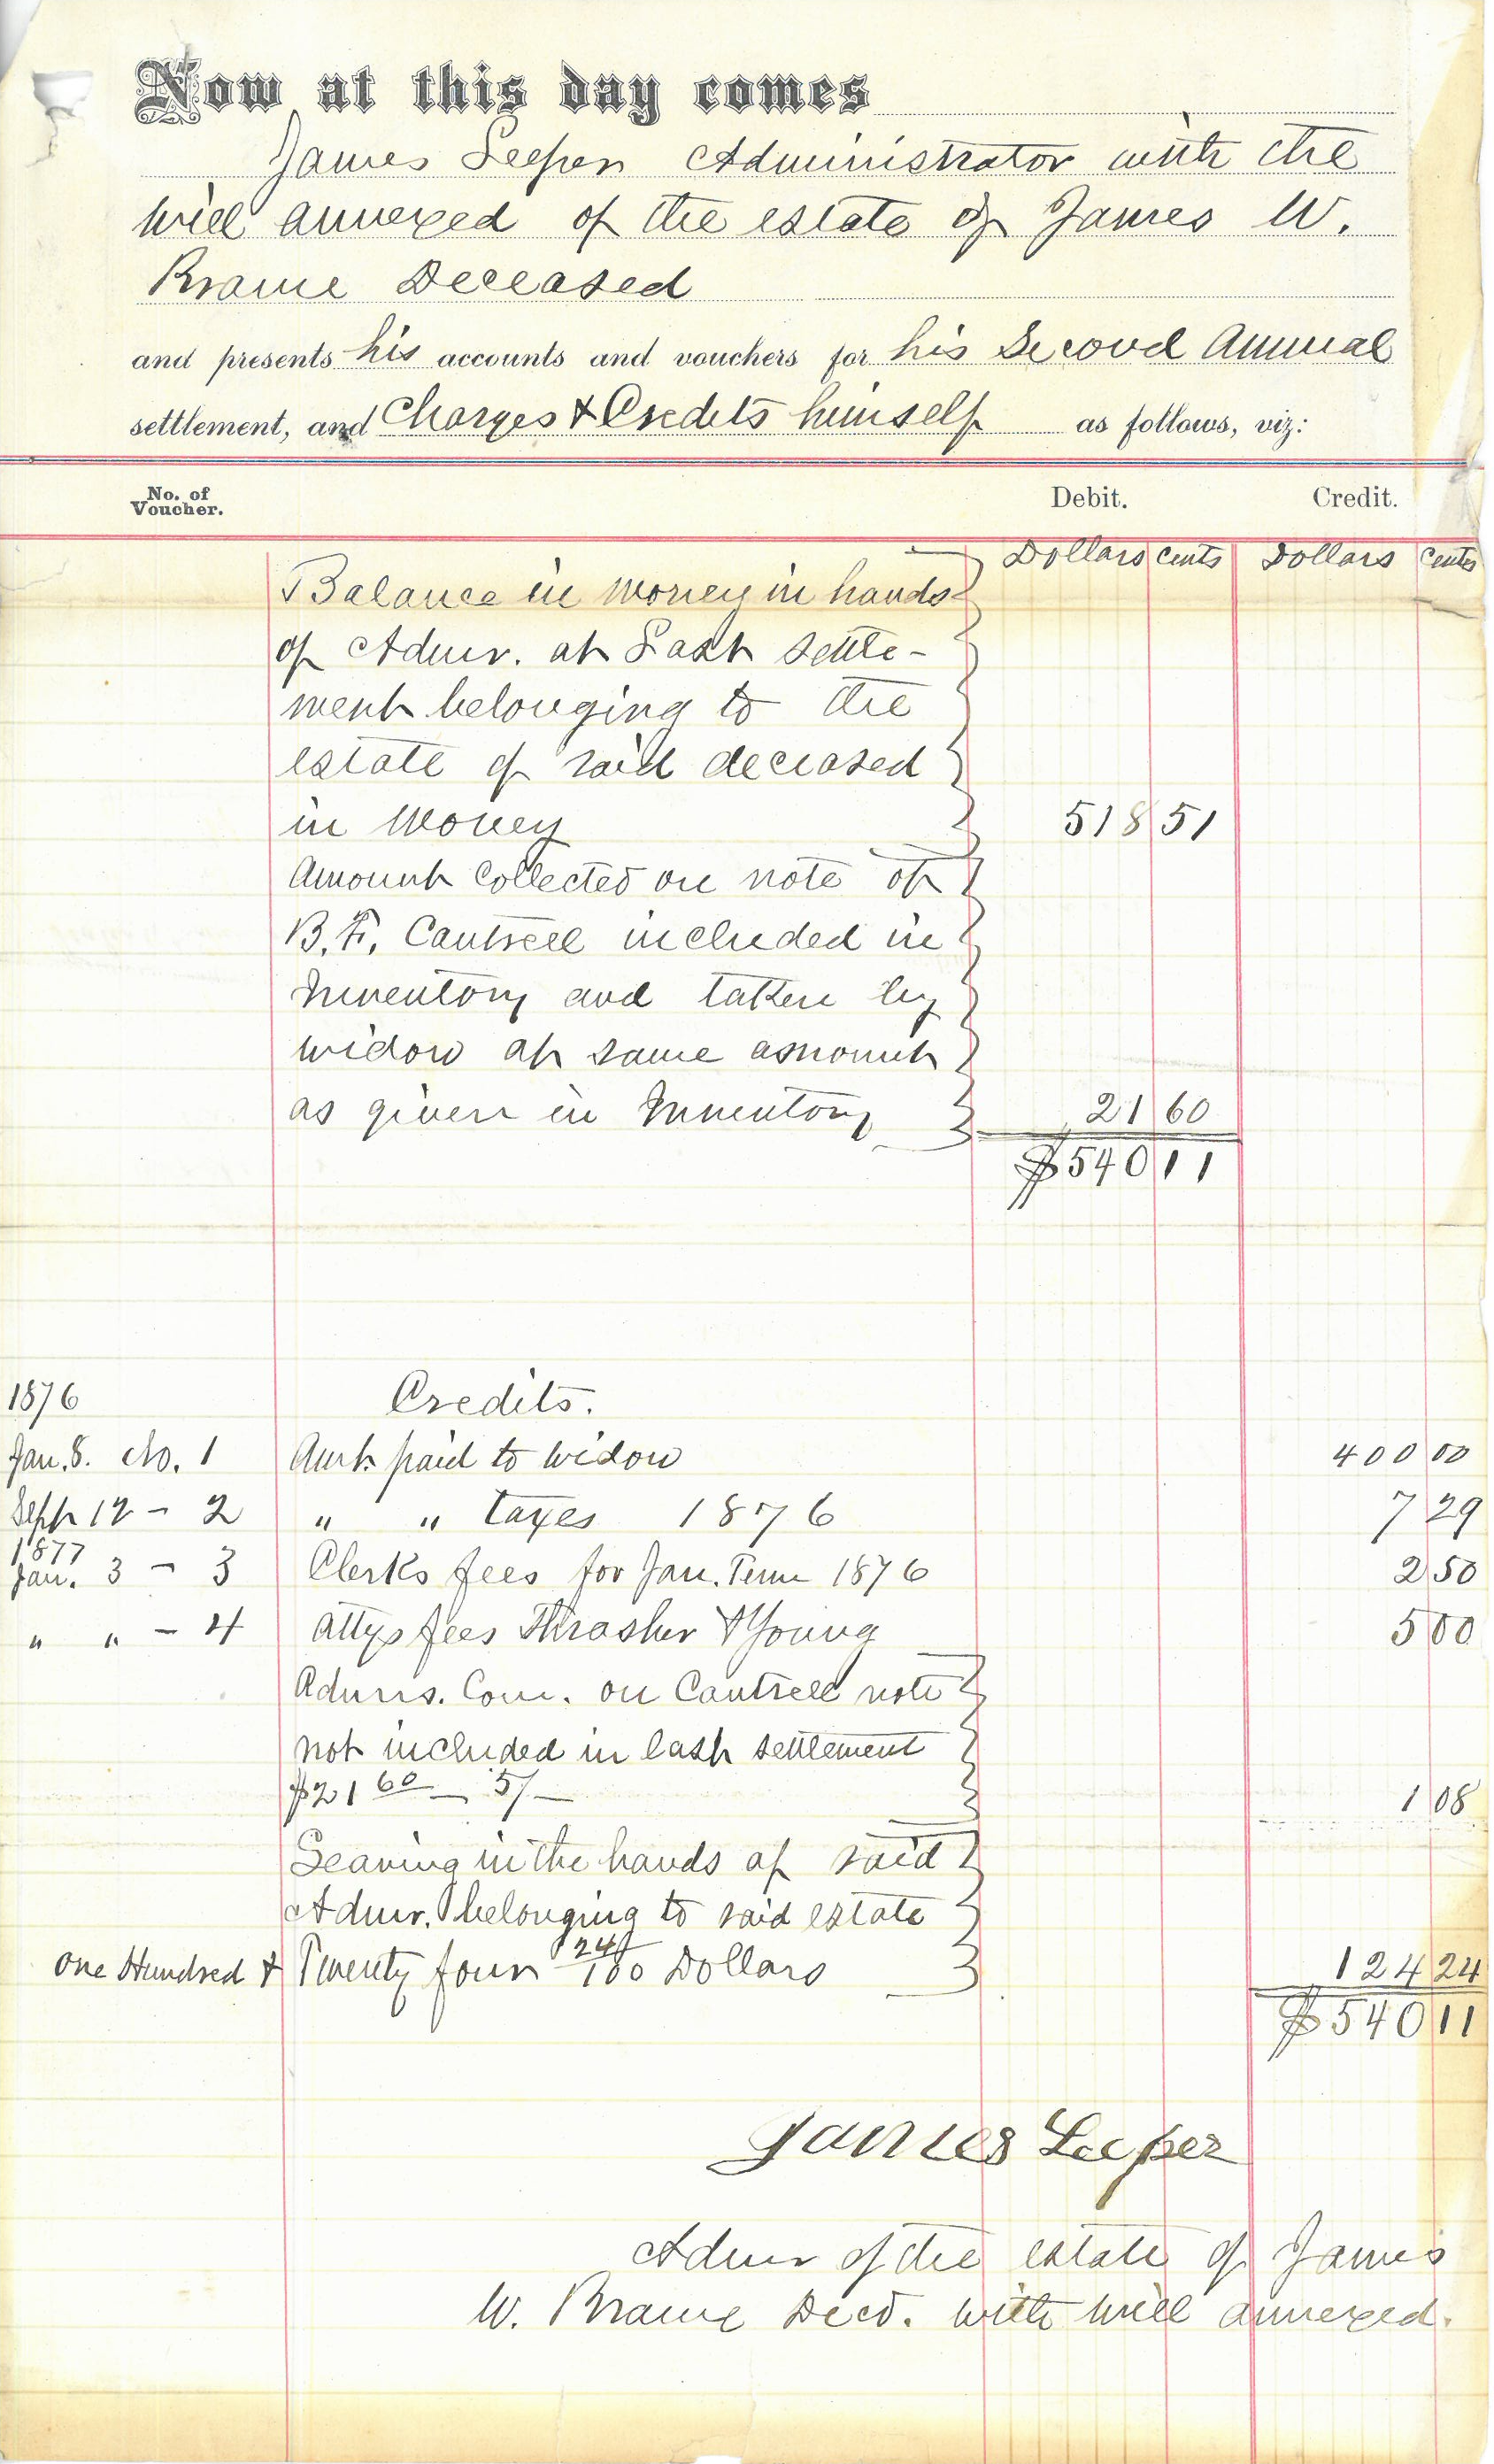 Now at this day comes
James Leeper Administrator with the
will annexed of the estate of James W.
Brame Deceased
and presents his accounts and vouchers for his Second Annual
settlement, and Charges & Credits himself as follows, viz:
No. of Voucher. Debit. Credit.
Dollars cents Dollars Cents
Balance in Money in hands
of Admr. at Last settle-
ment belonging to the
estate of said deceased
in Money 518 51
Amount Collected on note of
B. F. Cantrell included in
Inventory and taken by
widow at same amount
as given in Inventory 21 60
$540 11
1876 Credits.
Jan. 8. No. 1 Amt. paid to widow 400 00
Sept 12 - 2 " " taxes 1876 7 29
1877
Jan. 3 - 3 Clerks fees for Jan. Term 1876 2 50
" " - 4 Attys fees Thrasher & Young 5 00
Admrs. Com. on Cantrell note
not included in last settlement
$21 60 — 5/— 1 08
Leaving in the hands of said
Admr. belonging to said estate
One Hundred & Twenty four 24/100 Dollars 124 24
$540 11
James Leeper
Admr of the estate of James
W. Brame Decd. with will annexed.